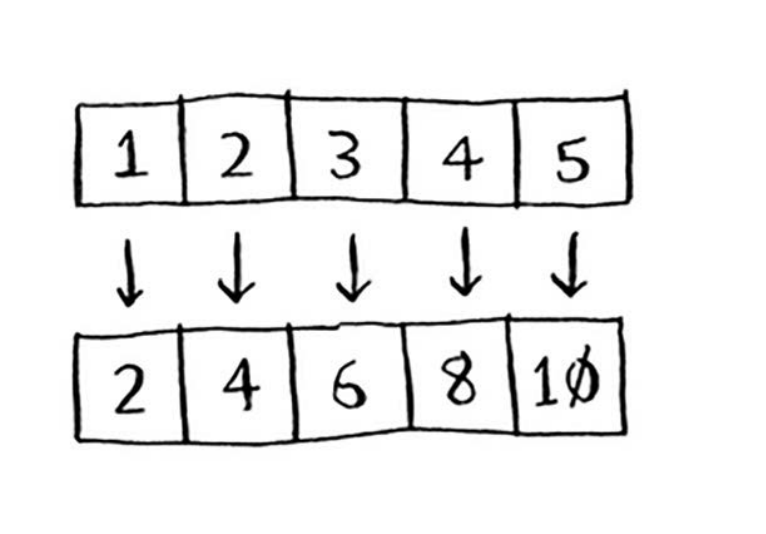 1 2 3 4 5
2 4 6 8 10